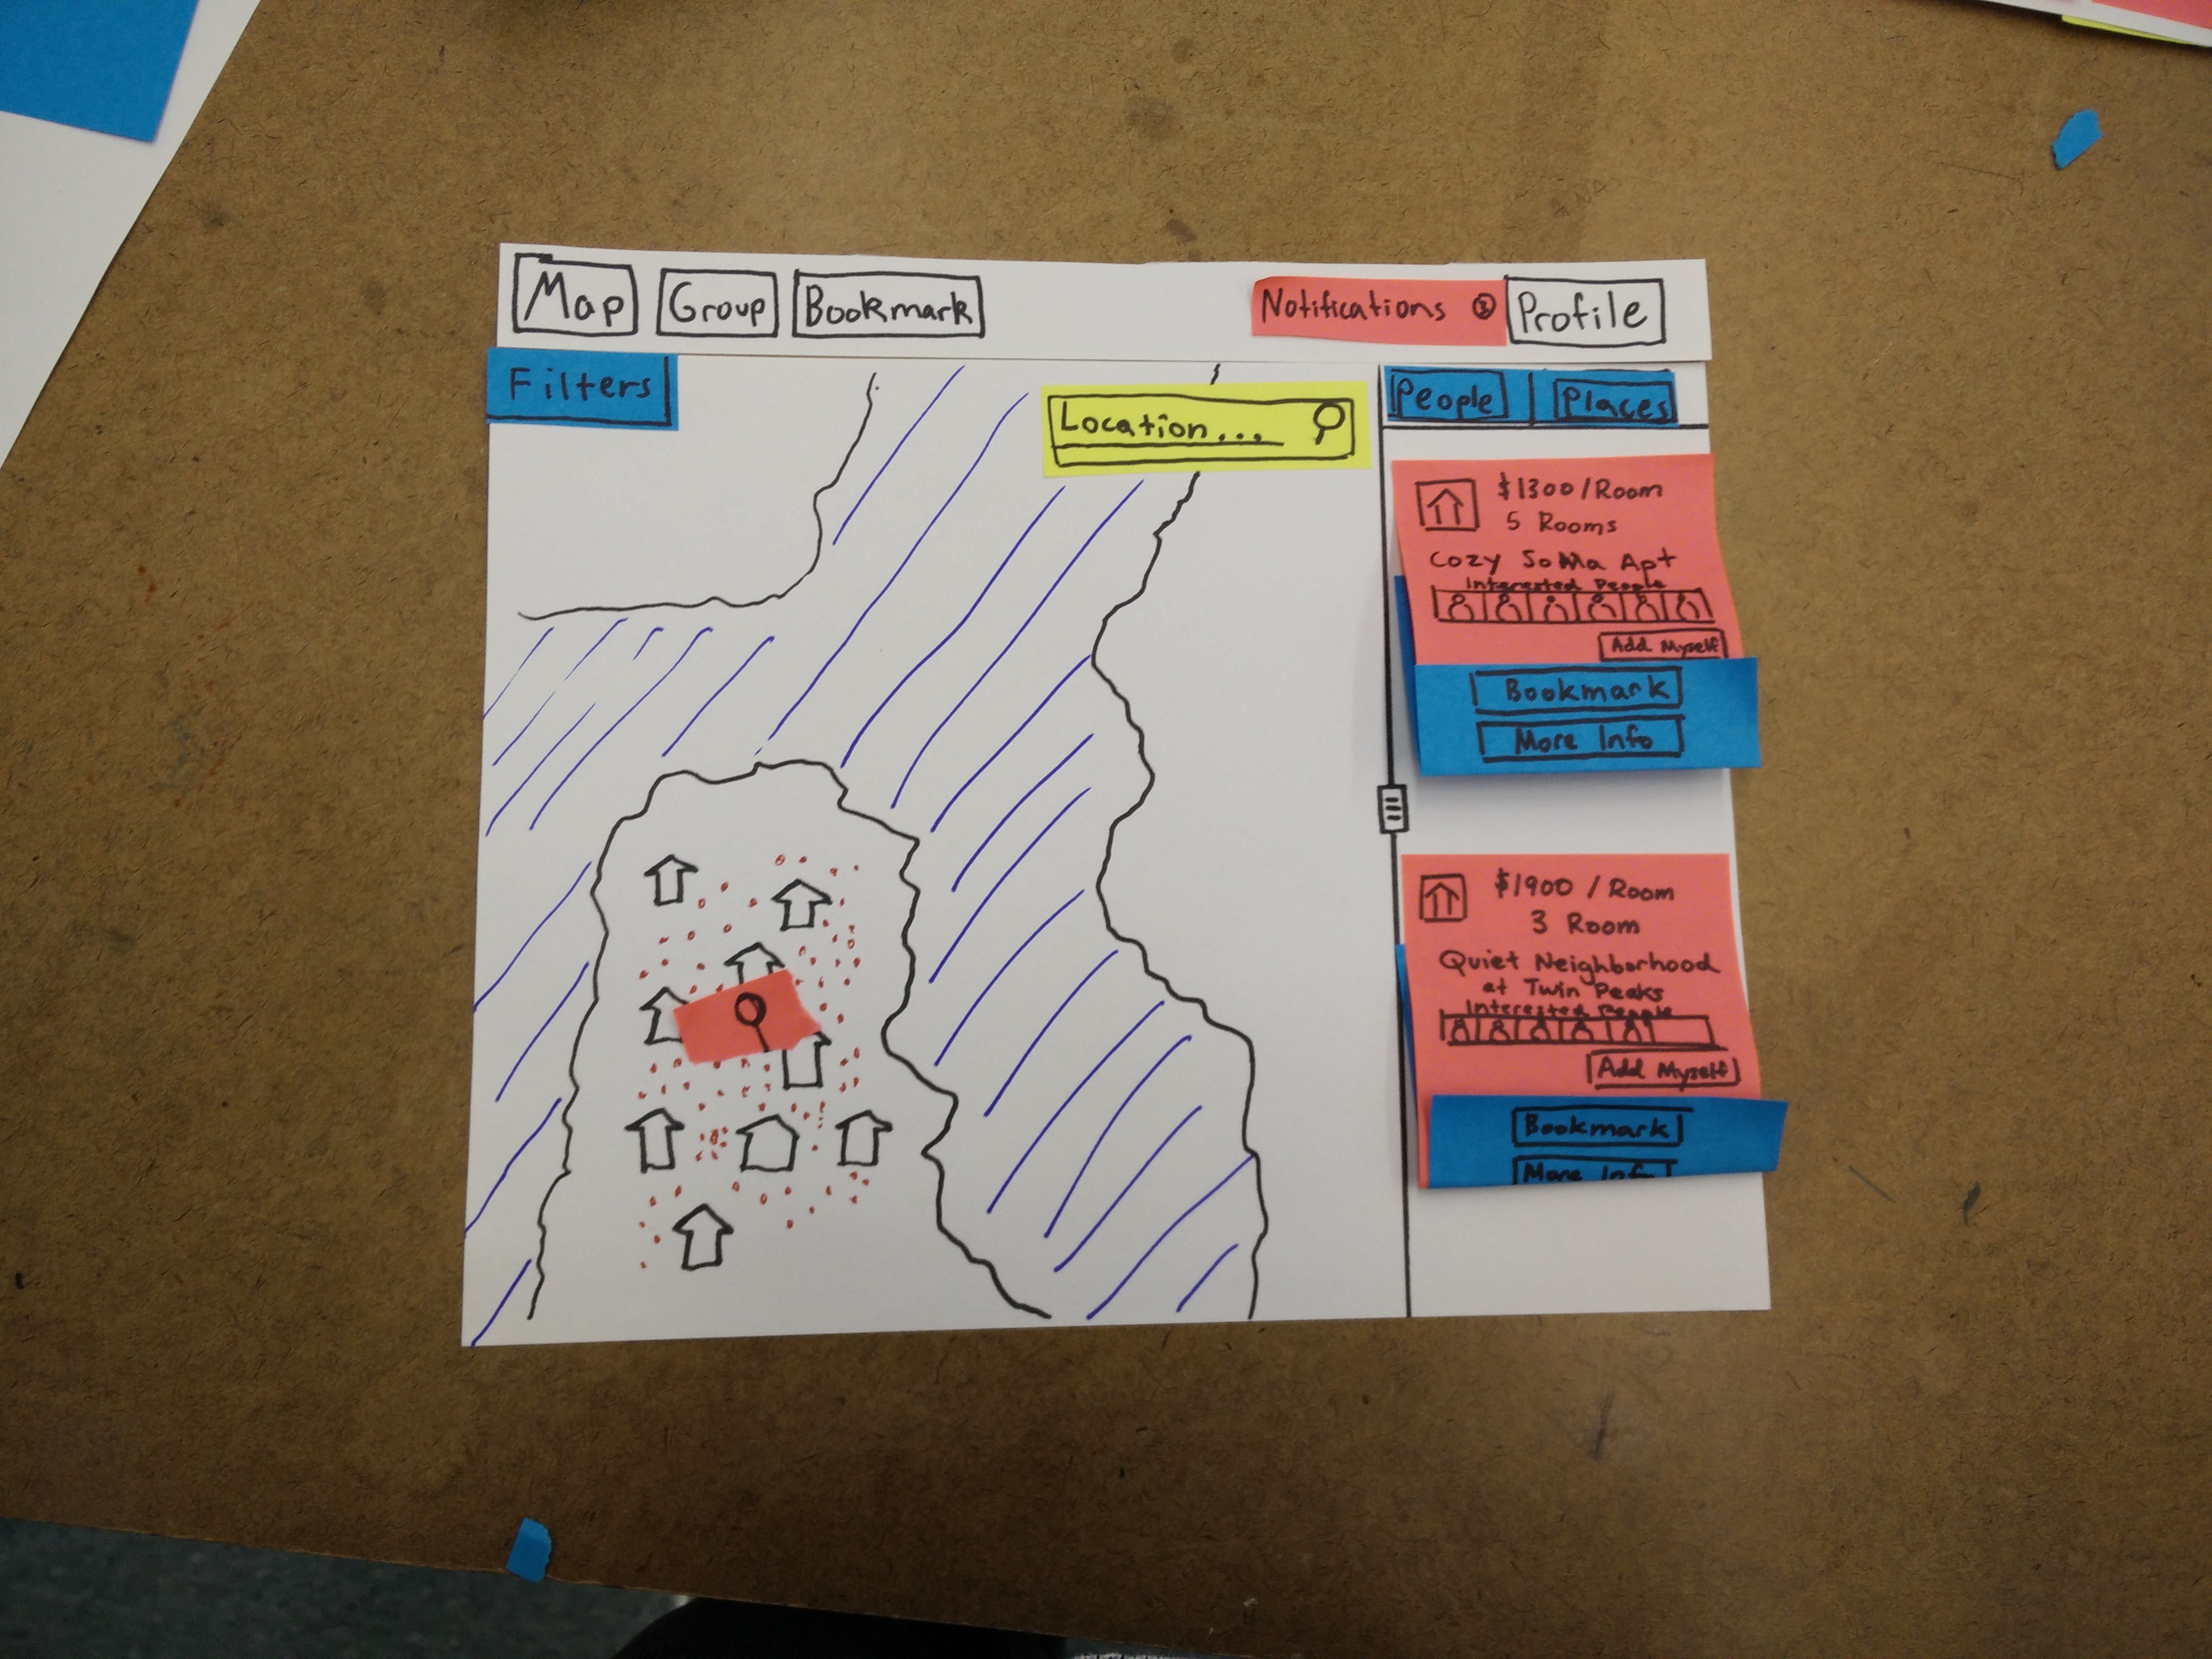 Map Group Bookmark Notifications 3 Profile
Filters
Location...
People Places
$1300/Room
5 Rooms
Cozy SoMa Apt
Interested People
Add Myself
Bookmark
More Info
$1900 / Room
3 Room
Quiet Neighborhood
at Twin Peaks
Interested People
Add Myself
Bookmark
More Info